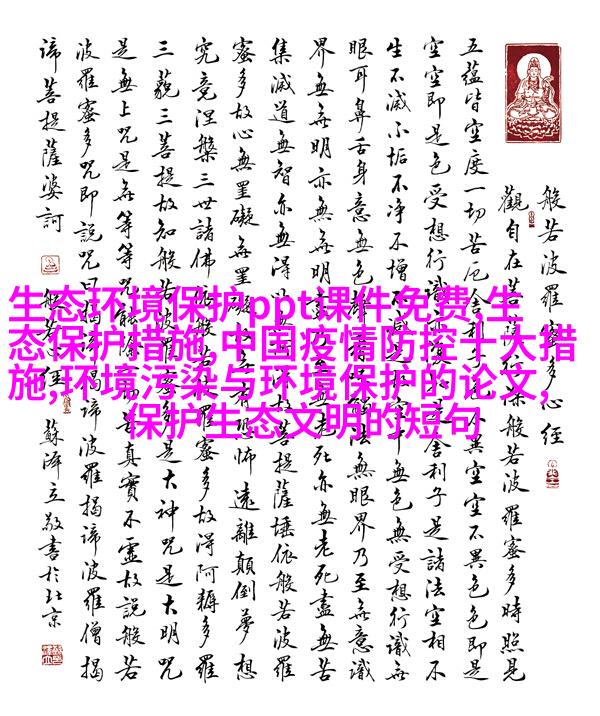 生态环境保护ppt课件免费,生
态保护措施,中国疫情防控十大措
施,环境污染与环境保护的论文,
保护生态文明的短句
般若波羅蜜多心經
觀自在菩薩行深般若波羅蜜多時照見
五蘊皆空度一切苦厄舍利子色不異空空不異色色即是
空空即是色受想行識亦復如是舍利子是諸法空相不
生不滅不垢不净不增不減是故空中無色無受想行識無
眼耳鼻舌身意無色聲香味觸法無眼界乃至無意識
界無無明亦無無明盡乃至無老死亦無老死盡無苦
集滅道無智亦無得以無所得故菩提薩埵依般若波羅
蜜多故心無罣礙無罣礙故無有恐怖遠離顛倒夢想
究竟涅槃三世諸佛依般若波羅蜜多故得阿耨多羅
三藐三菩提故知般若波羅蜜多是大神咒是大明咒
是無上咒是無等等咒能除一切苦真實不虛故說般若
波羅蜜多咒即說咒曰揭諦揭諦波羅揭諦波羅僧揭
諦菩提薩婆訶
般若心經
蘇澤立敬書於北京